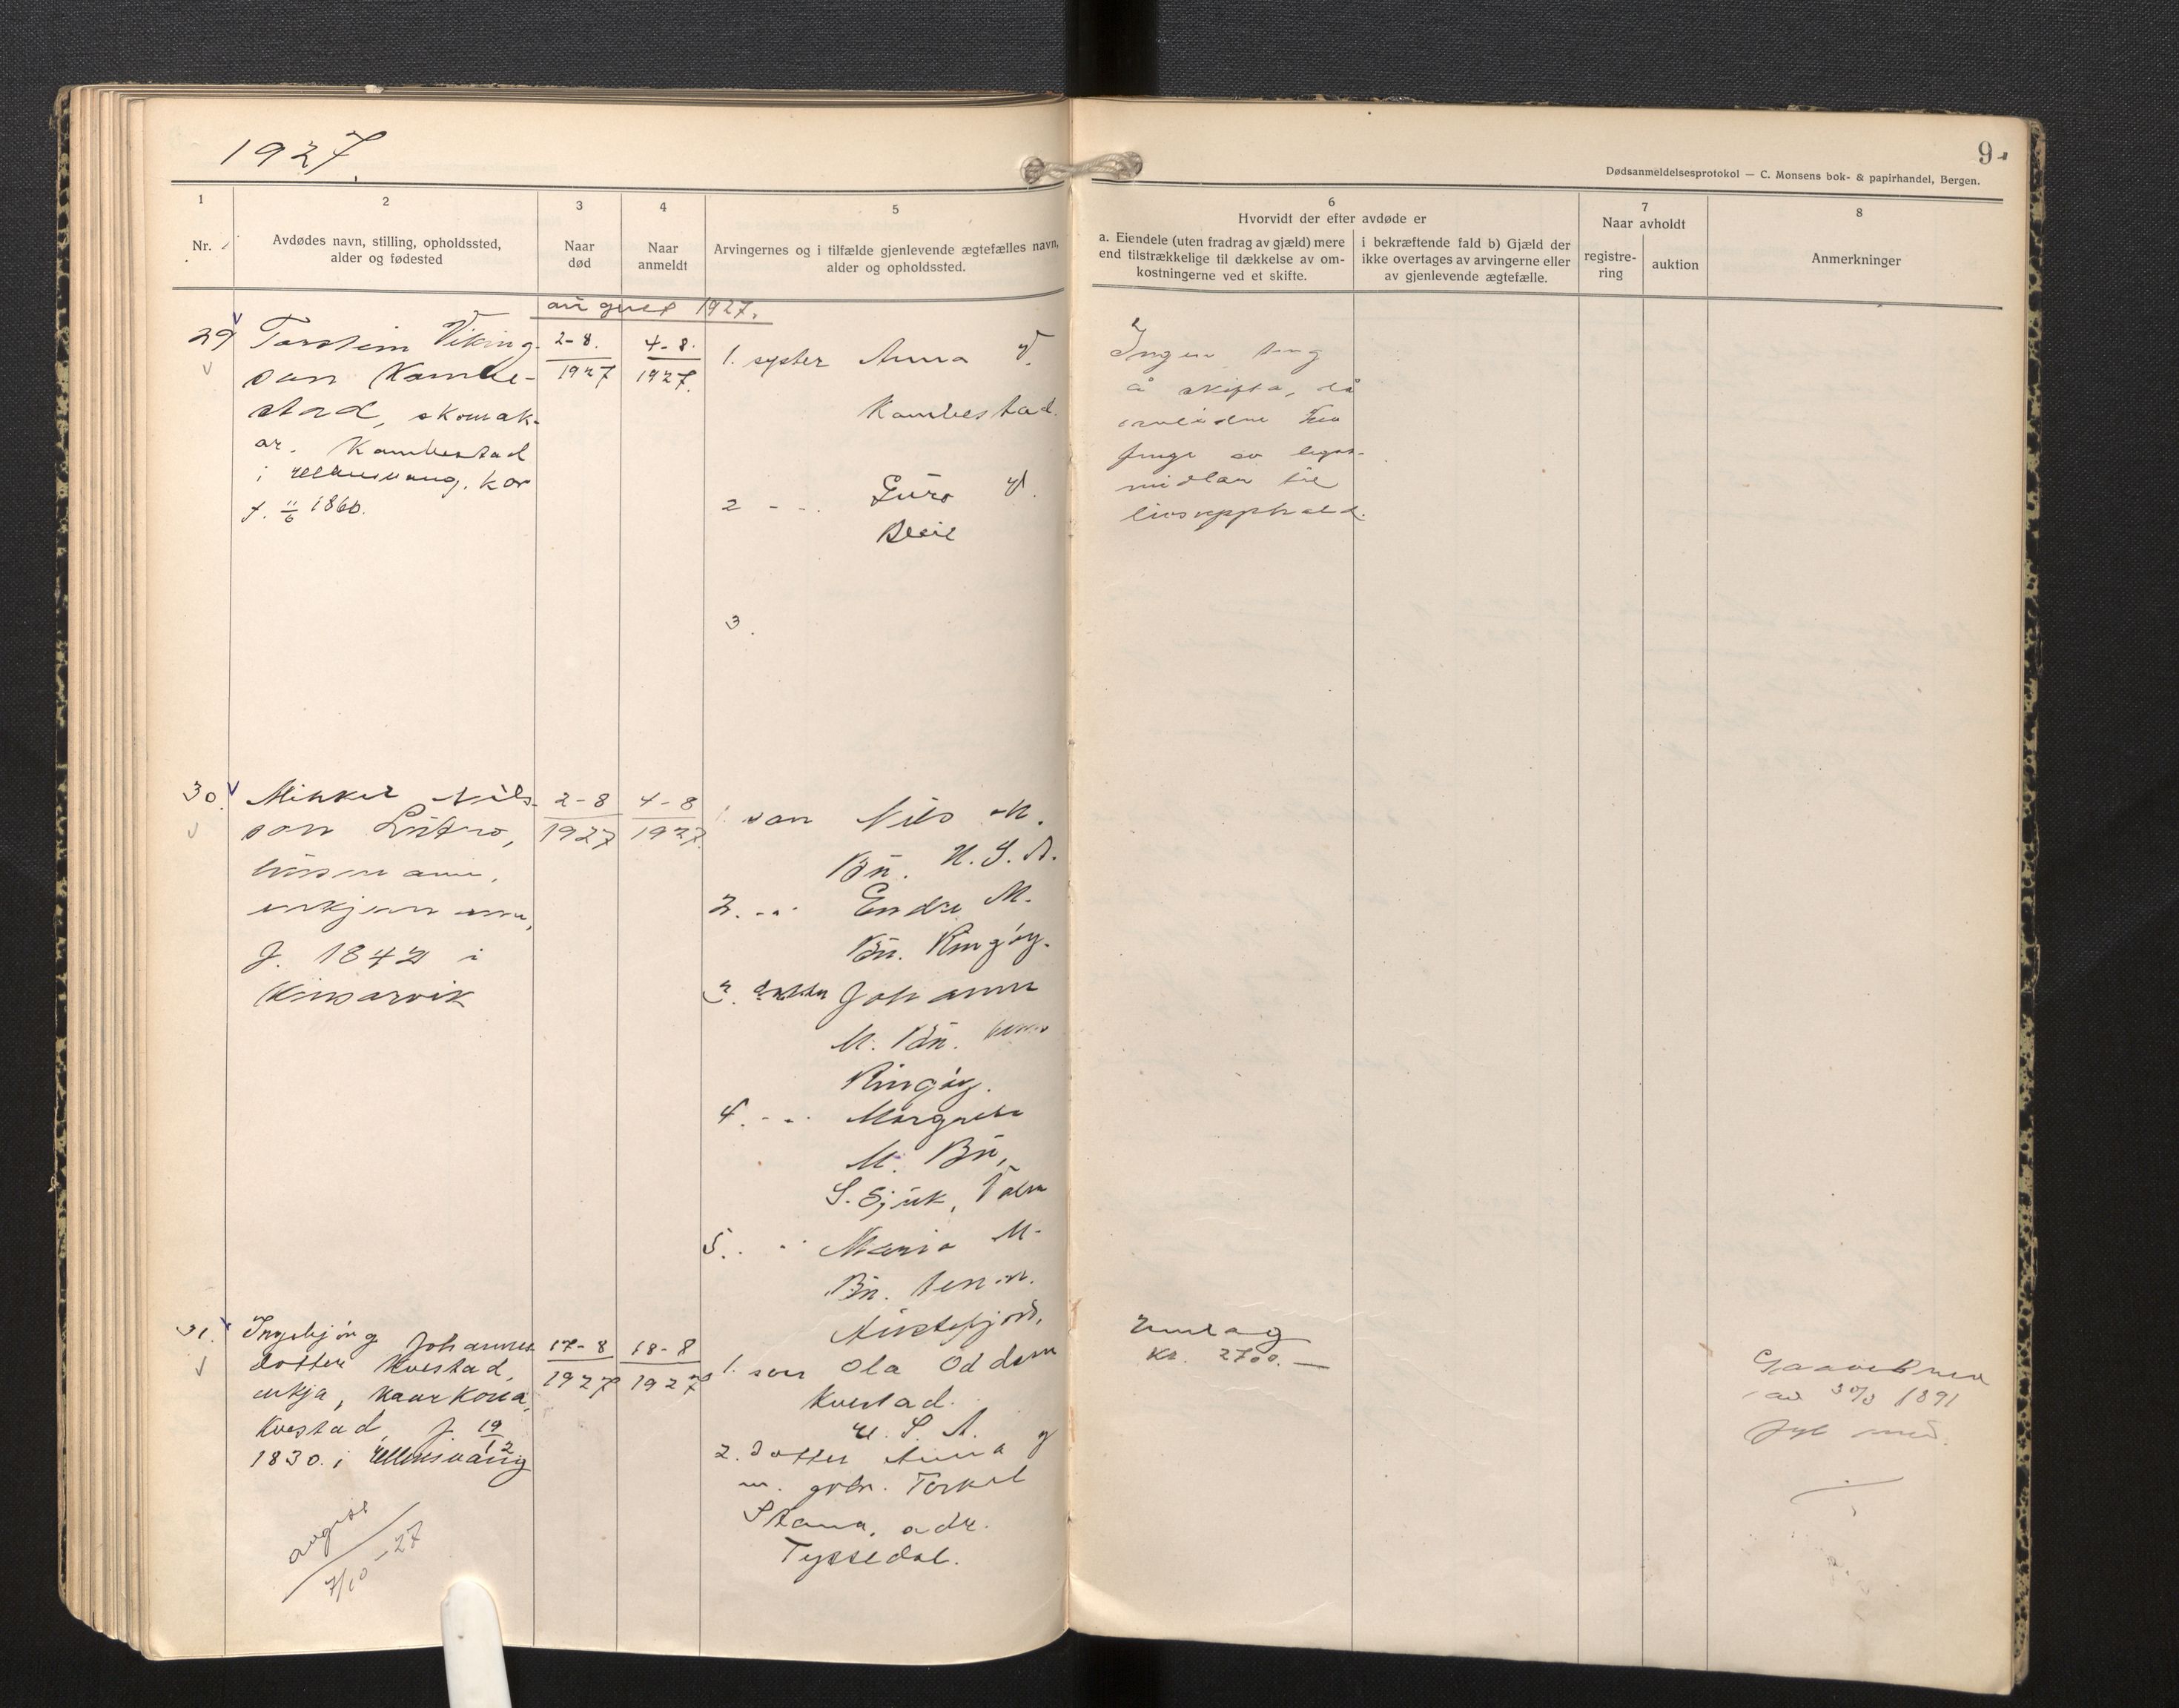 1927.
9.
Dødsanmeldelsesprotokol — C. Monsens bok- & papirhandel, Bergen.
1
Nr.
2
Avdødes navn, stilling, opholdssted,
alder og fødested
3
Naar
død
4
Naar
anmeldt
5
Arvingernes og i tilfælde gjenlevende ægtefælles navn,
alder og opholdssted.
6
Hvorvidt der efter avdøde er
a. Eiendele (uten fradrag av gjæld) mere
end tilstrækkelige til dækkelse av om-
kostningerne ved et skifte.
i bekræftende fald b) Gjæld der
ikke overtages av arvingerne eller
av gjenlevende ægtefælle.
7
Naar avholdt
registre-
ring
auktion
8
Anmerkninger
august 1927.
29
Torstein Viking-
son Kambe-
stad, skomak-
ar. Kambestad
i Ullensvang.
f. 11/6 1860.
2-8.
1927
4-8.
1927.
1. syster Anna V.
Kambestad.
2 - - Guro V.
Bleie
3.
Ingen ting
å skifta, då
til
livsupphald.
30.
Mikkel Nils-
son Lutro,
husmann,
enkjemann,
f. 1842 i
Kinsarvik
2-8
1927
4-8
1927.
1. son Nils M.
Bu. U.S.A.
2. - - Endre M.
Bu. Ringøy.
3. dotter Johanna
M. Bu.
Ringøy.
4. - - Margreta
M. Bu,
5. - - Maria M.
Bu.
31.
Ingebjørg Johannes
dotter Kvestad,
enkja, kaarkona,
Kvestad, f. 19/12
1830. i Ullensvang
17-8
1927
18-8
1927
1. son Ola Oddson
Kvestad.
U. S. A.
2. dotter Anna g
m. gbr. Torkel
Stana, adr.
Tyssedal.
Umlag
Kr. 2700.—
av 30/3 1891
fyl med.
avgjort
7/10-27